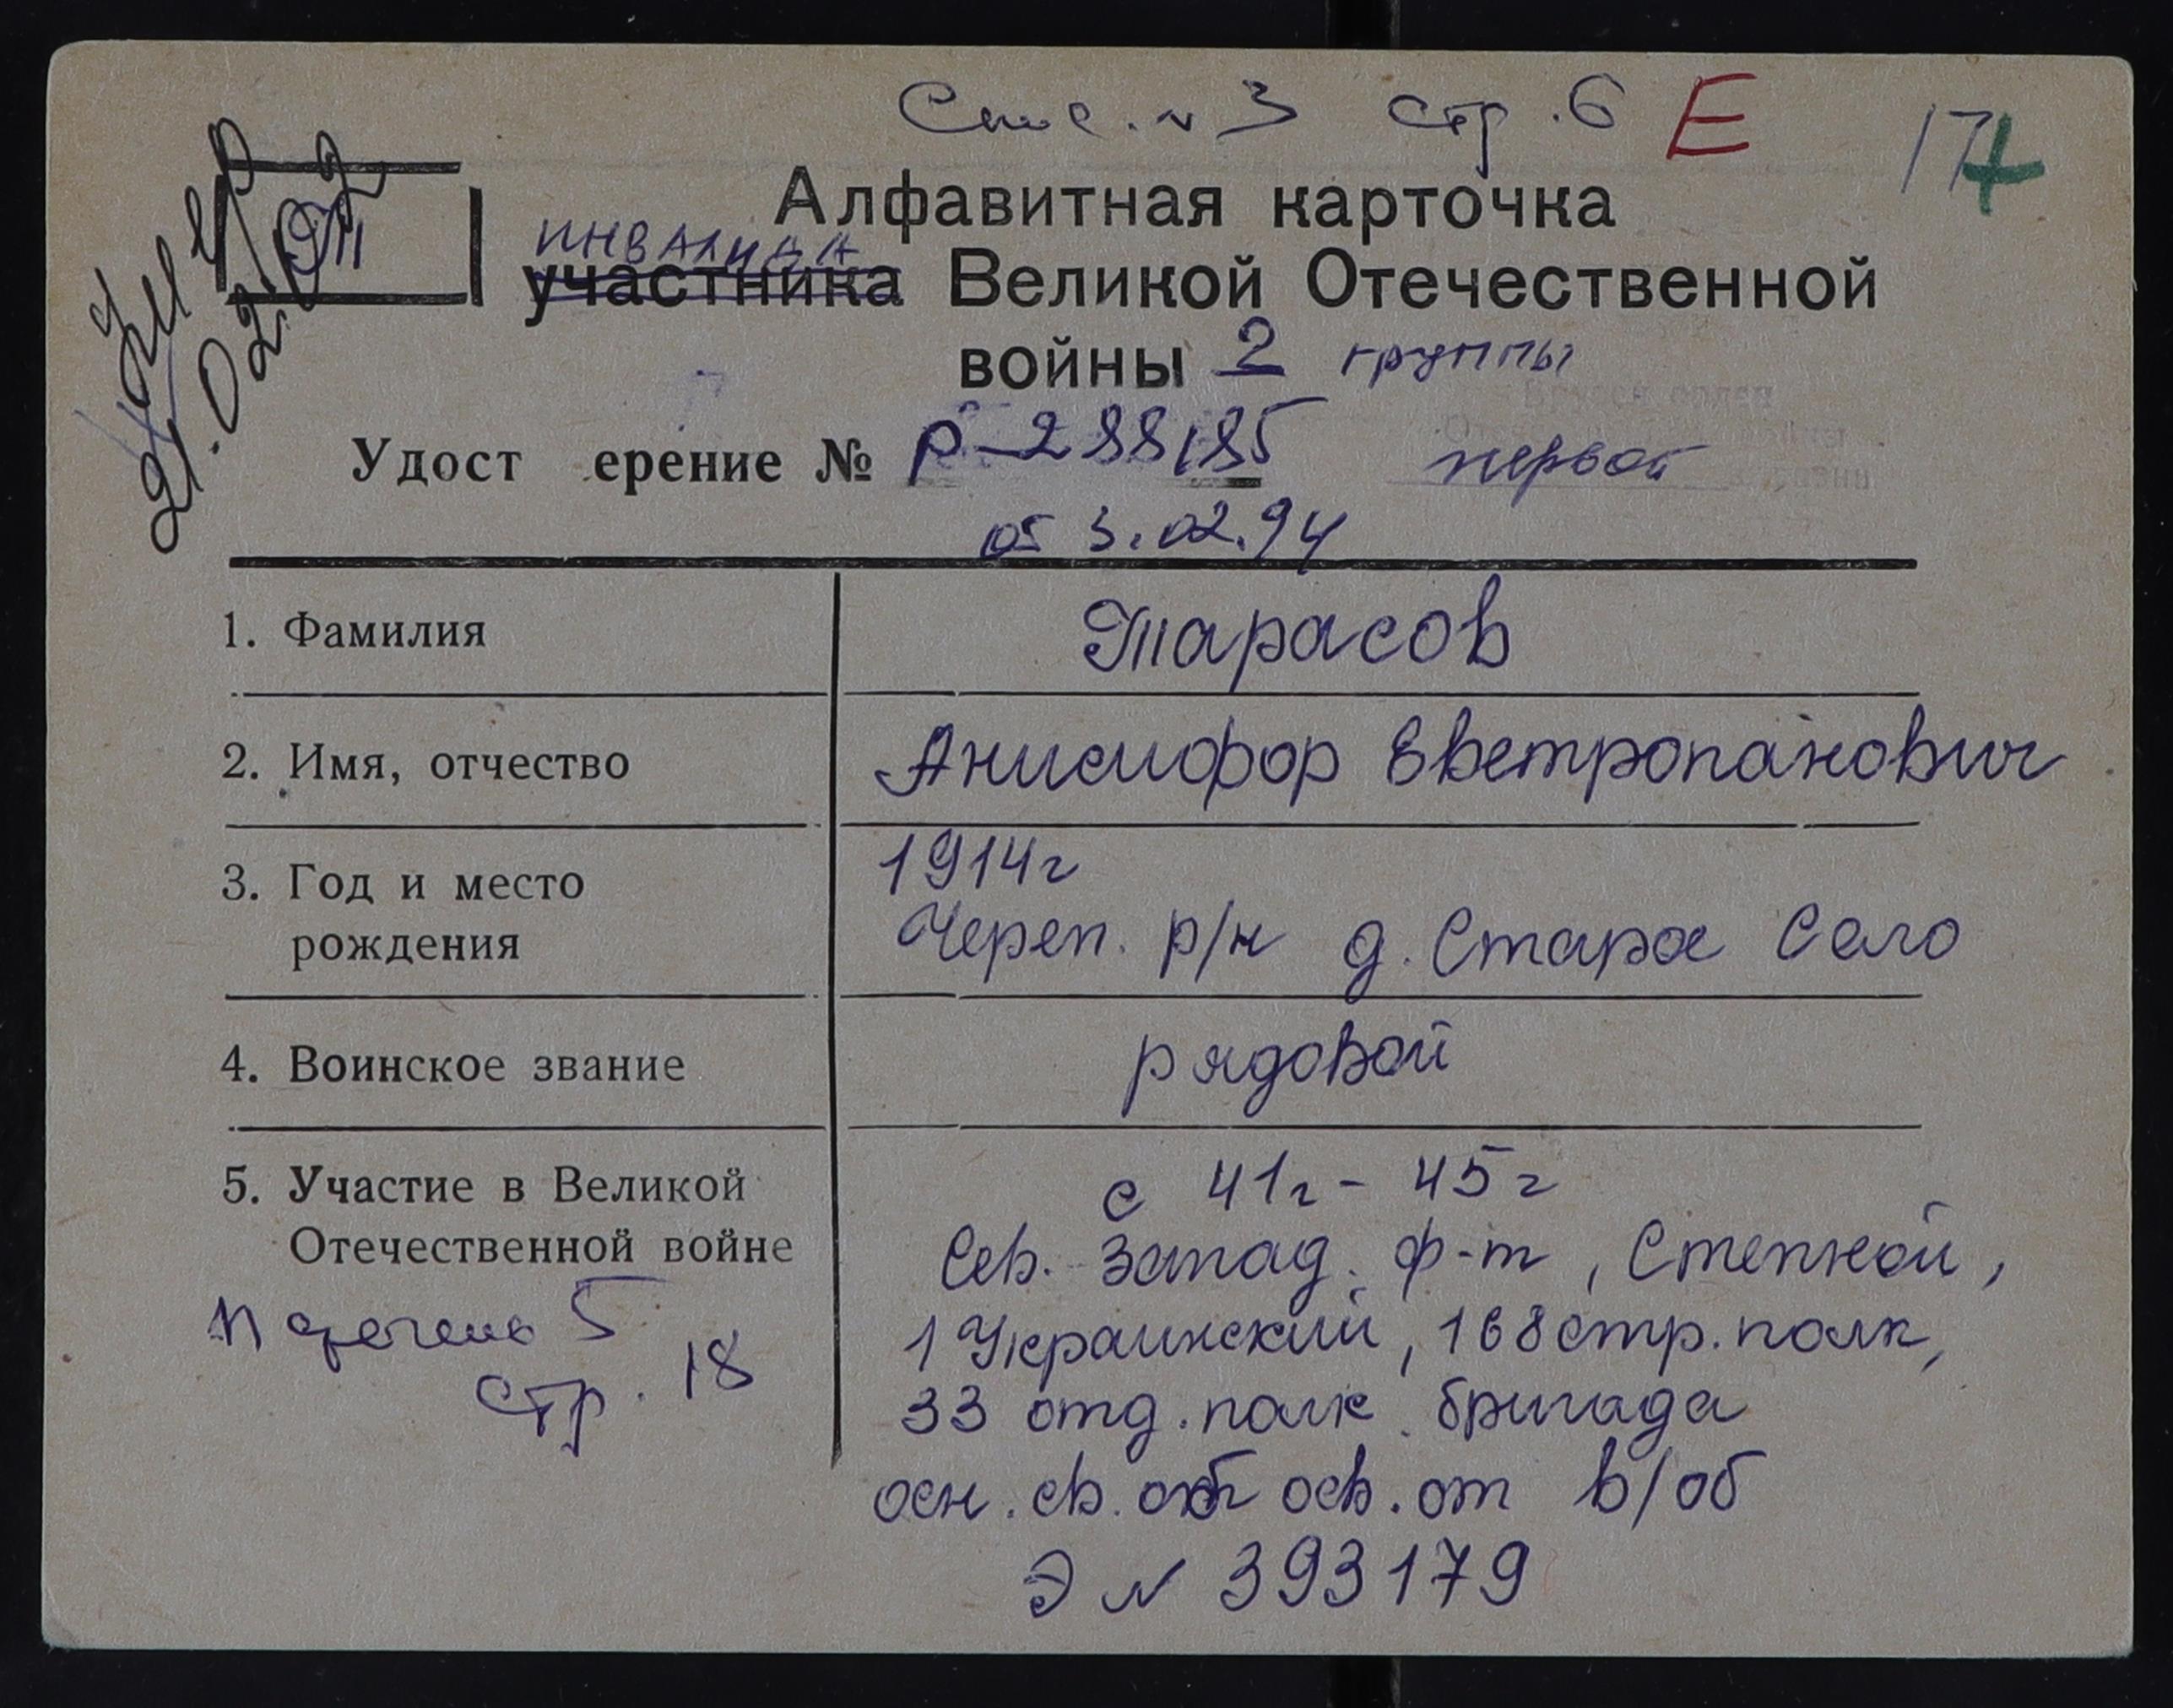 Спис. № 3 стр. 6 Е
17
Умер
21.02.
Алфавитная карточка
инвалида
участника Великой Отечественной
войны 2 группы
Удост ерение № Р-288185 первой
от 3.02.94
1. Фамилия Тарасов
2. Имя, отчество Анисифор Евстропанович
3. Год и место рождения 1914г
Череп. р/н д. Старое Село
4. Воинское звание рядовой
5. Участие в Великой Отечественной войне с 41г - 45г
Сев. Запад. ф-т, Степной,
1 Украинский, 168 стр. полк,
33 отд. полк. бригада
осн. св. об осв. от в/об
Э № 393179
стр. 18